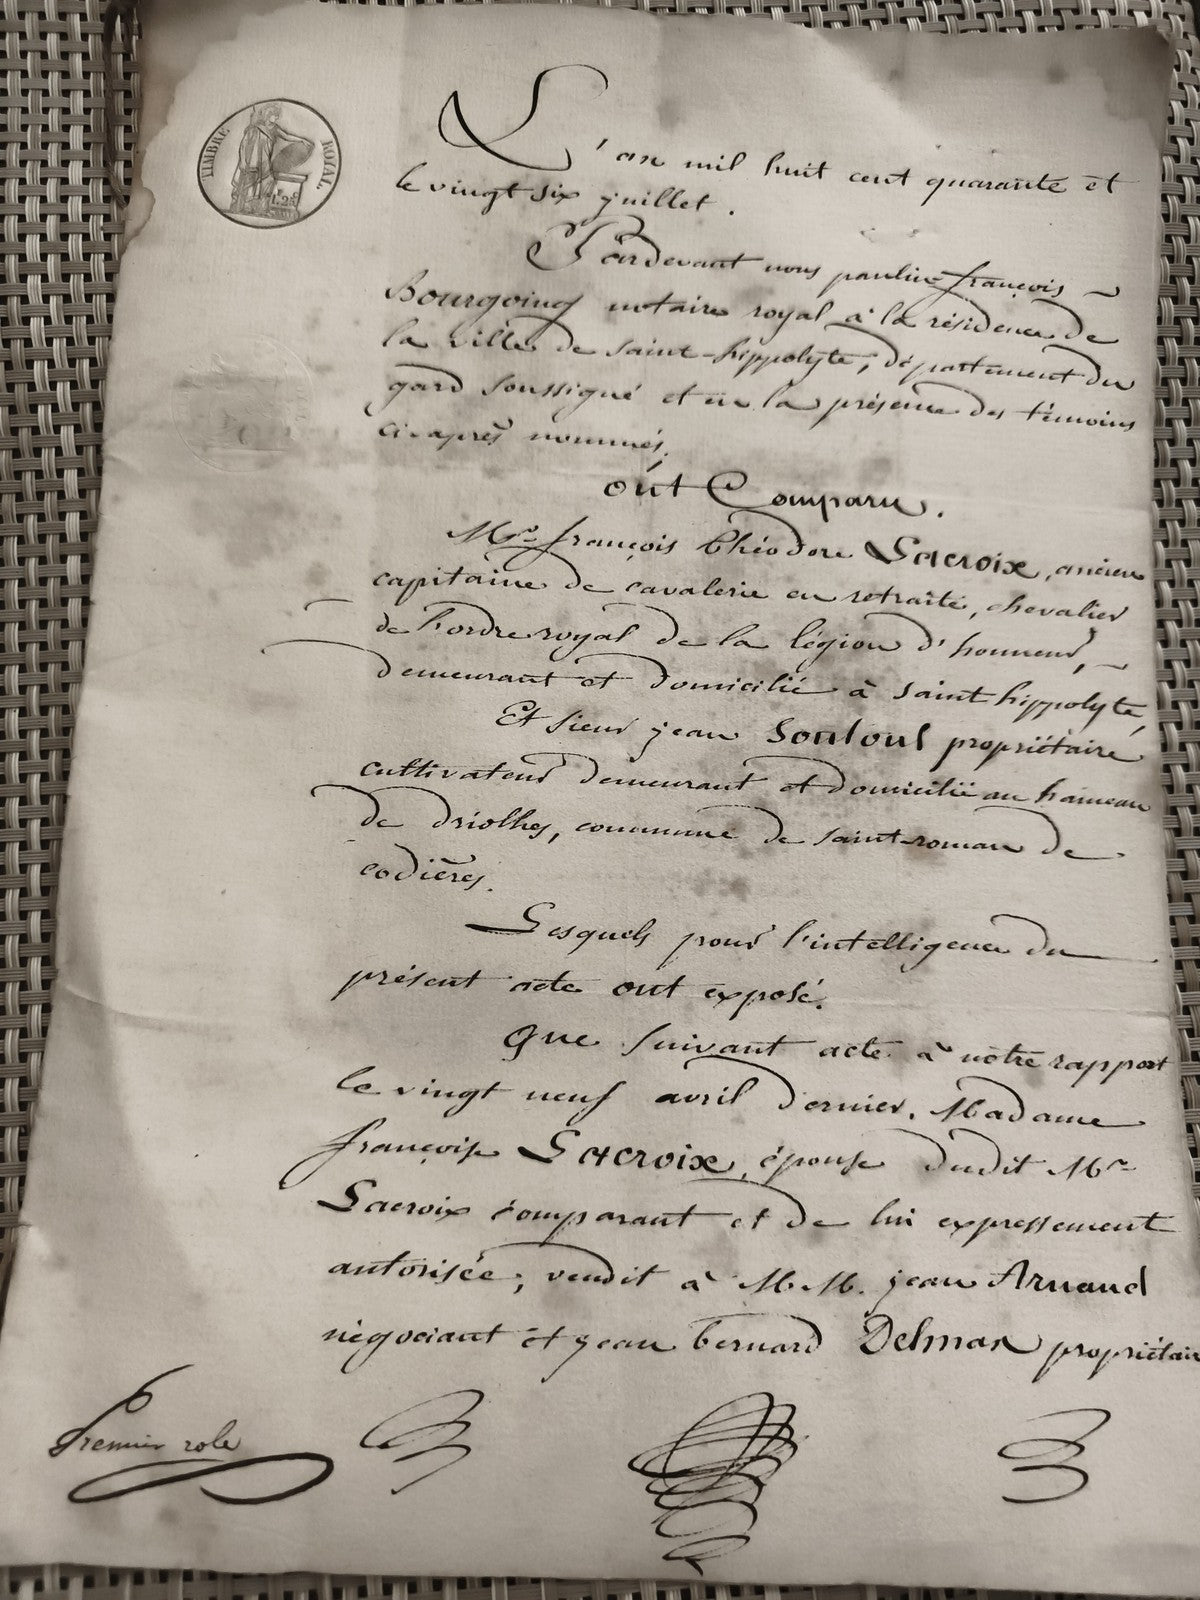 TIMBRE ROYAL
1f.25
L'an mil huit cent quarante et
le vingt six juillet.
Pardevant nous paulin françois
Bourgoing notaire royal à la résidence de
la ville de saint-hippolyte, département du
gard soussigné et en la présence des témoins
ci-après nommés,
ont Comparu.
Mr. françois théodore Lacroix, ancien
capitaine de cavalerie en retraite, chevalier
de l'ordre royal de la légion d'honneur,
demeurant et domicilié à saint hippolyte,
Et sieur jean Souloul propriétaire
cultivateur demeurant et domicilié au hameau
de driolhes, commune de saint-roman de
codières.
Lesquels pour l'intelligence du
présent acte ont exposé.
Que suivant acte à notre rapport
le vingt neuf avril dernier, Madame
françoise Lacroix, épouse dudit Mr
Lacroix comparant et de lui expressement
autorisée, vendit à MM. jean Arnaud
négociant et jean bernard Delmas propriétair
Premier role